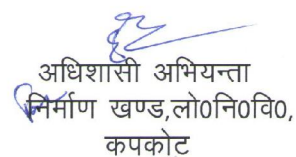 अधिशासी अभियन्ता
निर्माण खण्ड,लो0नि0वि0,
कपकोट